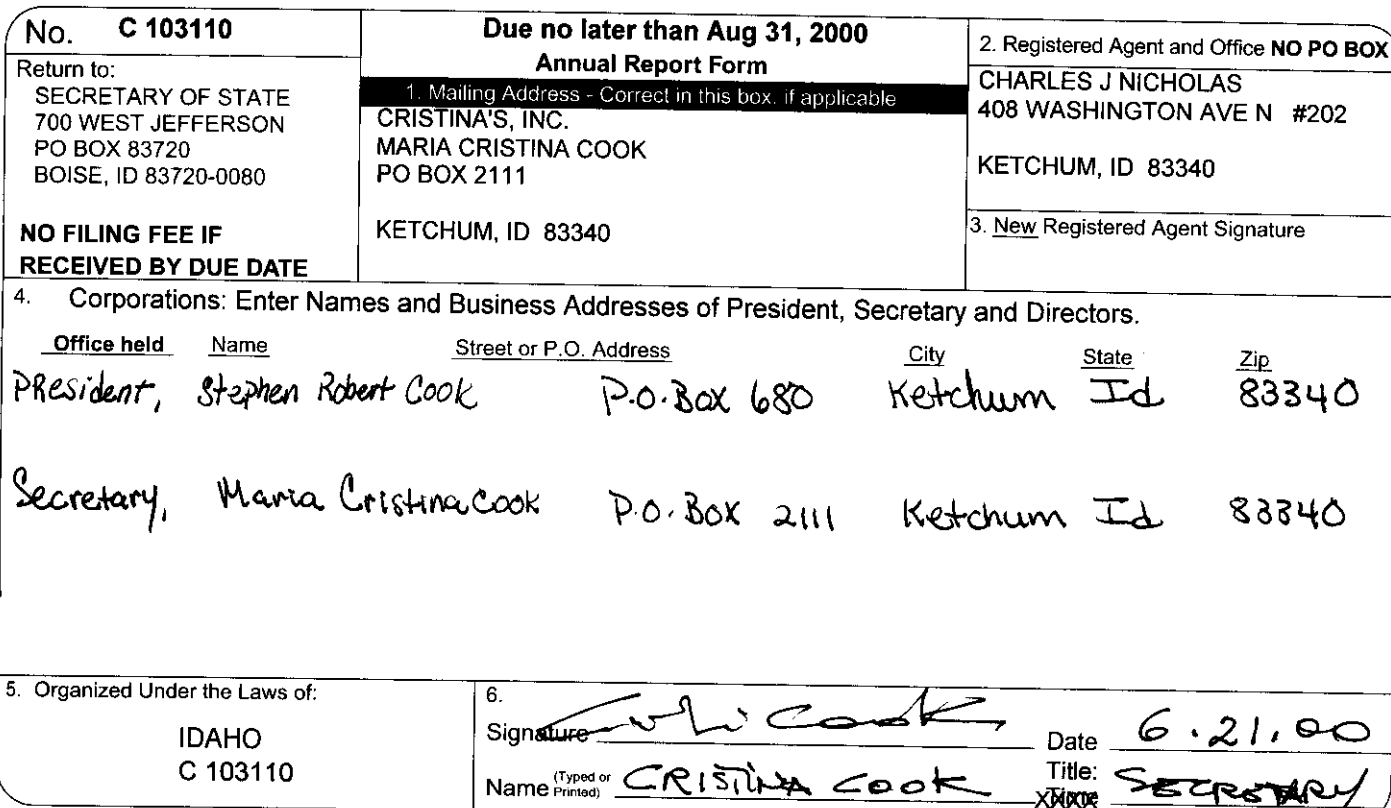 No. C 103110
Return to:
SECRETARY OF STATE
700 WEST JEFFERSON
PO BOX 83720
BOISE, ID 83720-0080
NO FILING FEE IF
RECEIVED BY DUE DATE
Due no later than Aug 31, 2000
Annual Report Form
1. Mailing Address - Correct in this box. if applicable
CRISTINA'S, INC.
MARIA CRISTINA COOK
PO BOX 2111
KETCHUM, ID 83340
2. Registered Agent and Office NO PO BOX
CHARLES J NICHOLAS
408 WASHINGTON AVE N #202
KETCHUM, ID 83340
3. New Registered Agent Signature
4. Corporations: Enter Names and Business Addresses of President, Secretary and Directors.
Office held Name Street or P.O. Address City State Zip
President, Stephen Robert Cook P.O. Box 680 Ketchum Id 83340
Secretary, Maria Cristina Cook P.O. Box 2111 Ketchum Id 83340
5. Organized Under the Laws of:
IDAHO
C 103110
6.
Signature Cook Date 6.21.00
Name (Typed or Printed) CRISTINA COOK Title: SECRETARY